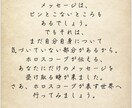 メッセージは、
ピンとこないところも
あるでしょう。
でもそれは、
まだ自分自身について
気づいていない部分があるから。
ホロスコープが伝える
あなただけのメッセージを
受け取る時が来ました。
さあ、ホロスコープが表す世界へ
行ってみましょう。